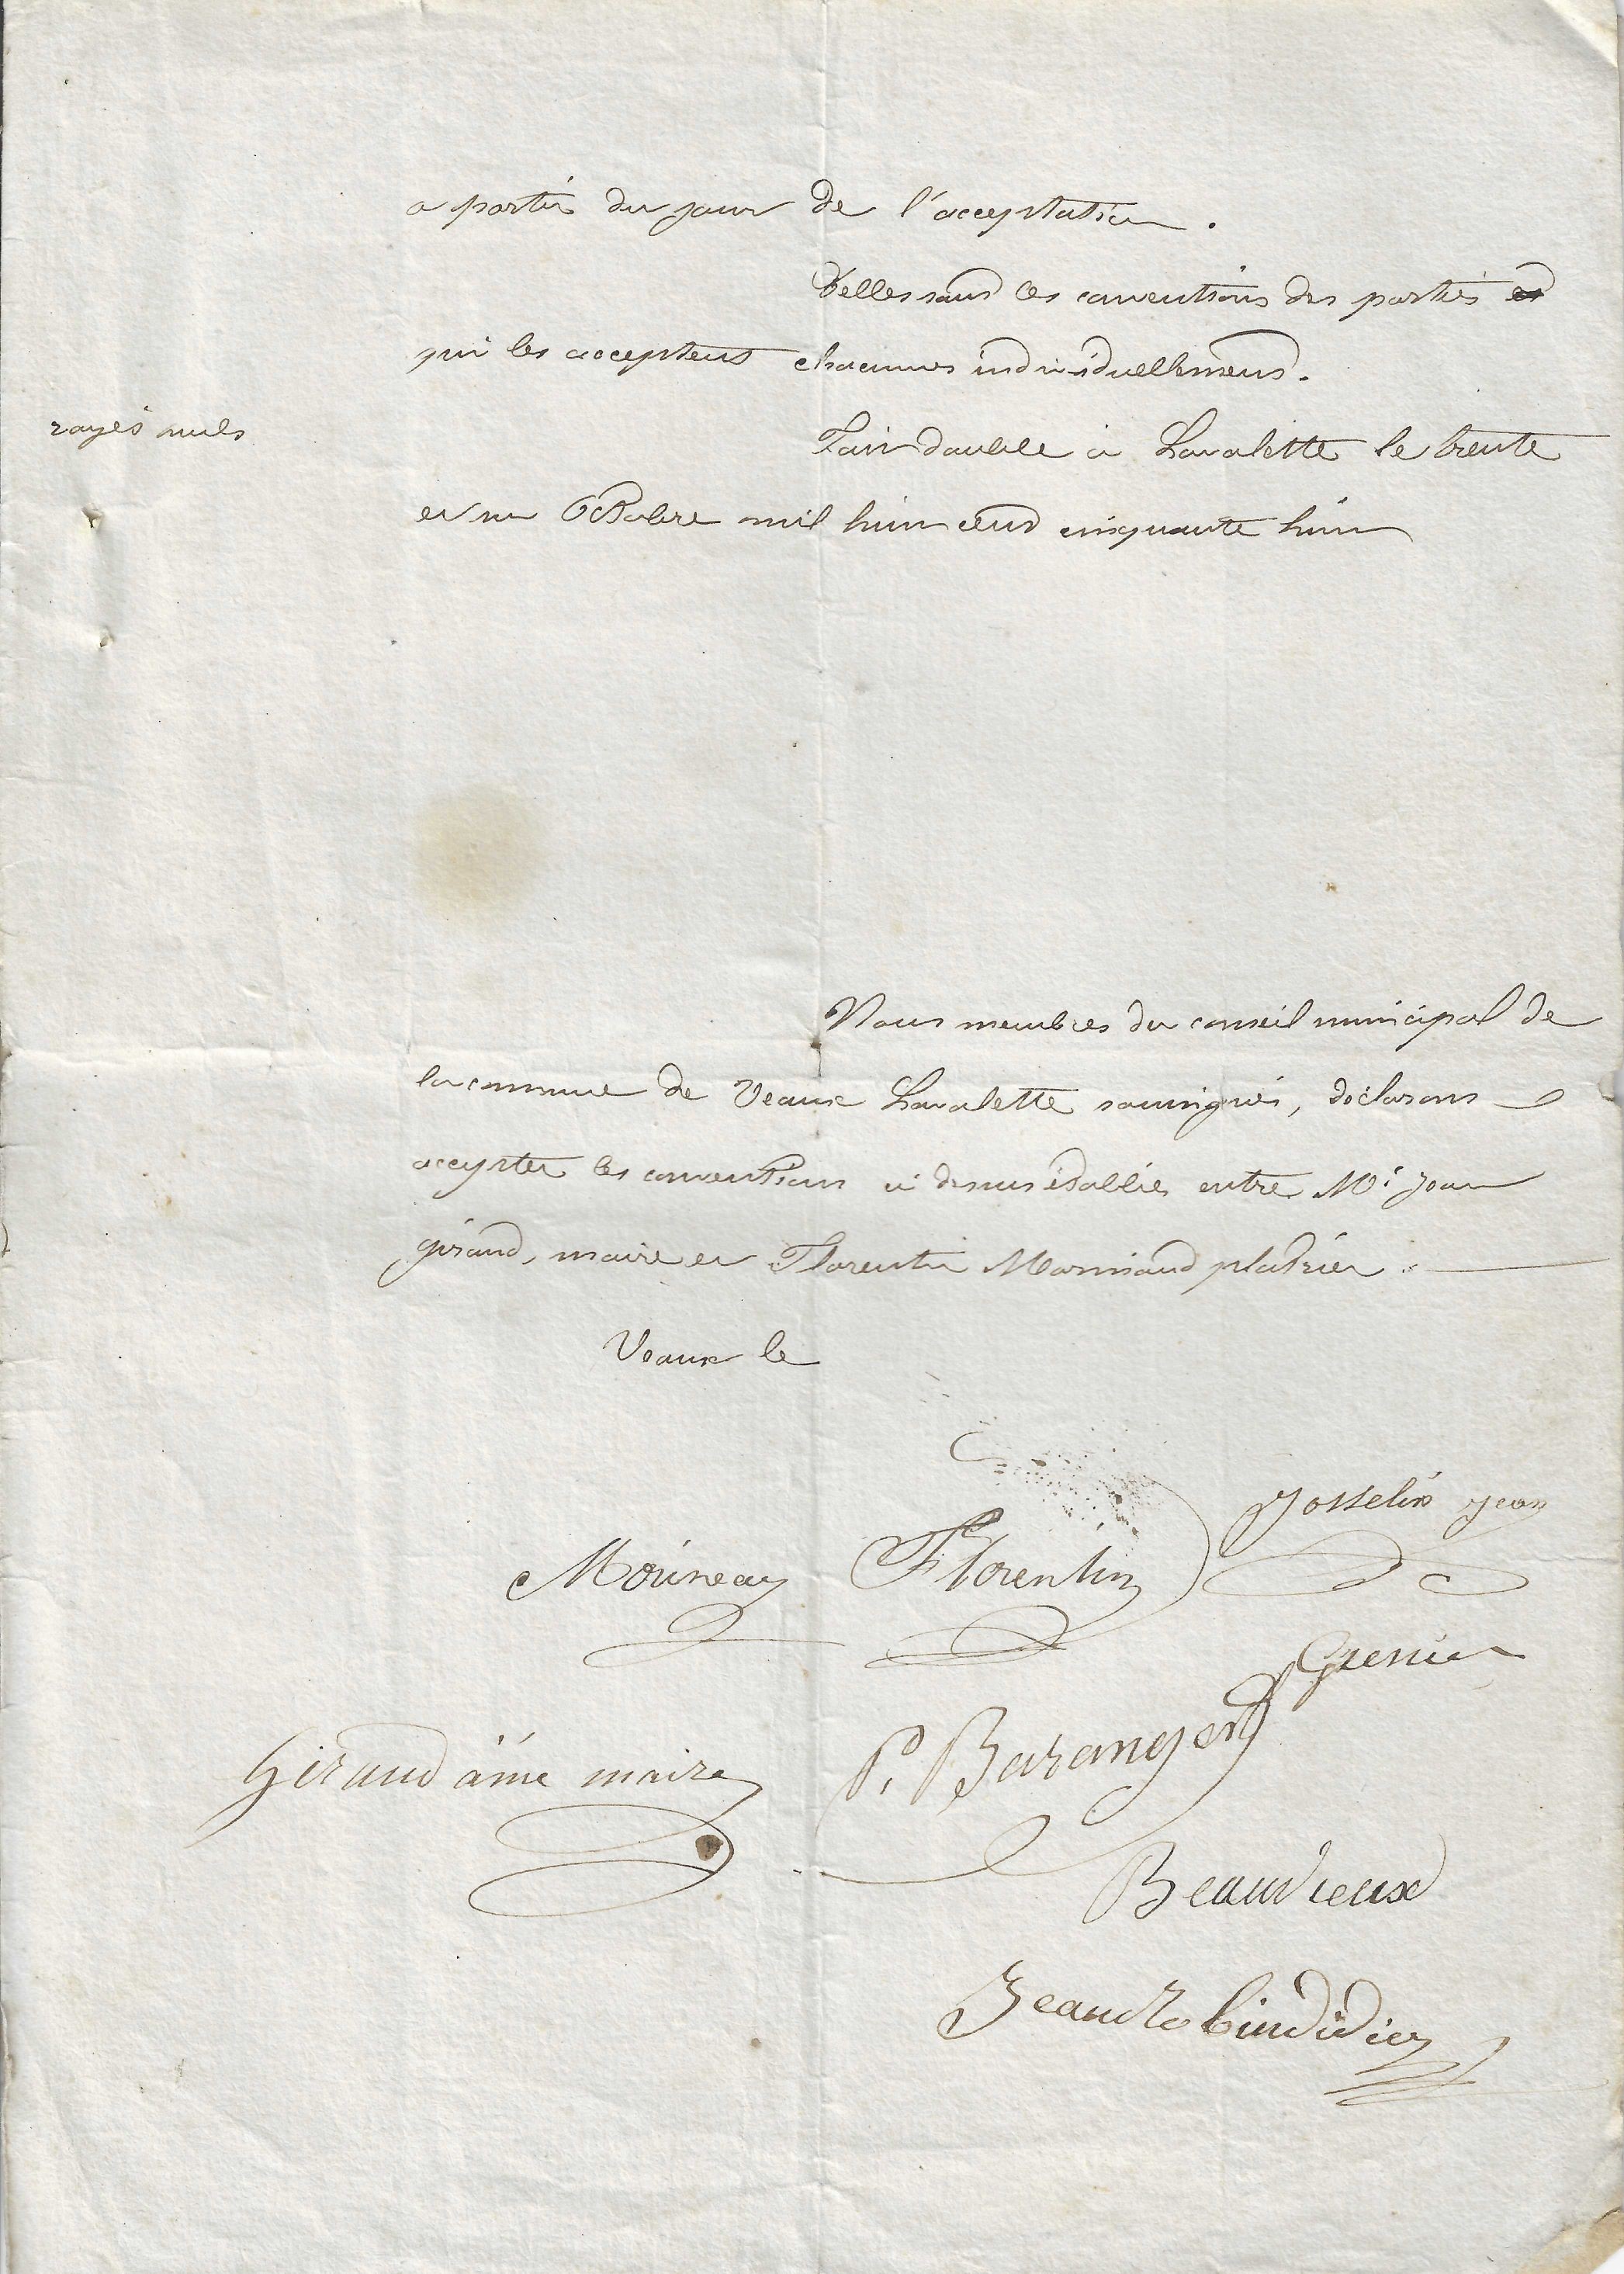 a partir du jour de l'acceptation.
Telles sont les conventions des parties et
qui les acceptent chacunes individuellement.
rayés nuls
Fait double à Lavalette le trente
et un Octobre mil huit cent cinquante huit
Nous membres du conseil municipal de
la commune de Veaux Lavalette soussignés, déclarons
accepter les conventions ci dessus établies entre Mr Jean
giraud, maire et Florentin Marmiaud platrier.
Veaux le
Josselin Jean
Moineau Florentin
Grenier
Giraud aîné maire P. Baranger
Beaudieux